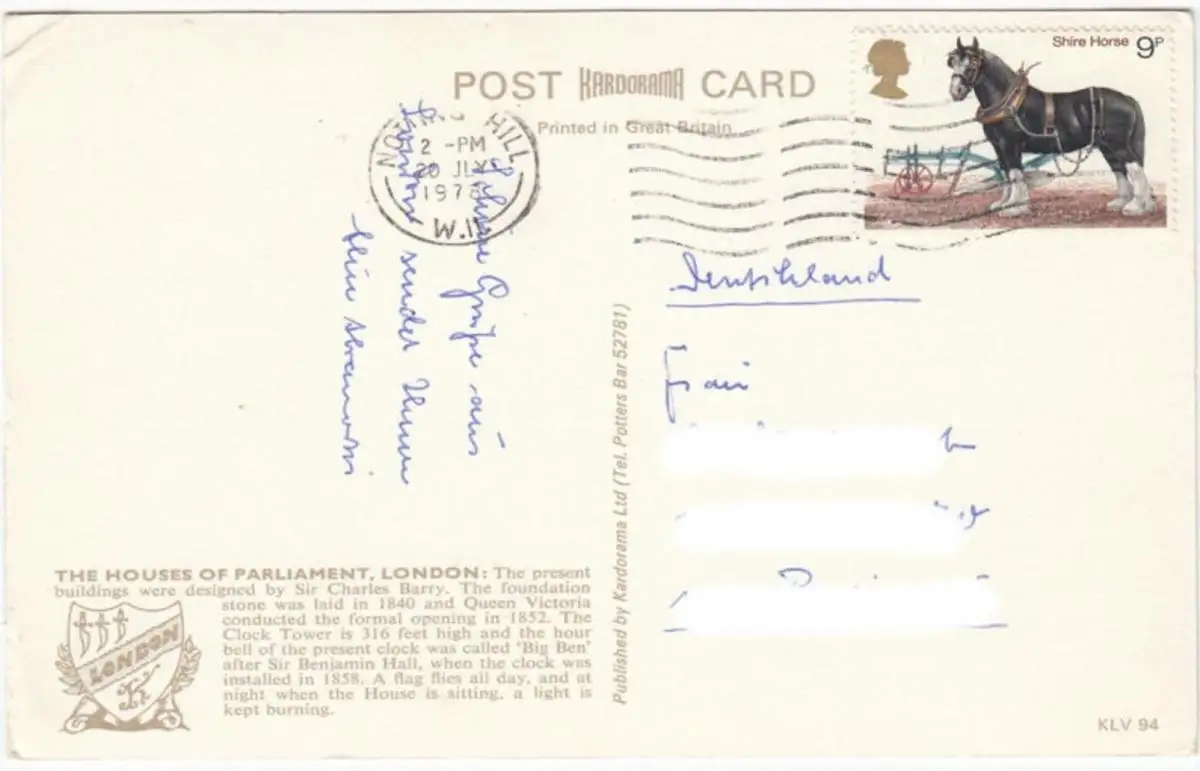 POST KARDORAMA CARD
Printed in Great Britain
Shire Horse 9P
HILL
2 - PM
20 JLY
197
W.11
Schöne Grüße aus
London sendet Ihnen
Deutschland
Frau
Published by Kardorama Ltd (Tel. Potters Bar 52781)
THE HOUSES OF PARLIAMENT, LONDON: The present
buildings were designed by Sir Charles Barry. The foundation
stone was laid in 1840 and Queen Victoria
conducted the formal opening in 1852. The
Clock Tower is 316 feet high and the hour
bell of the present clock was called 'Big Ben'
after Sir Benjamin Hall, when the clock was
installed in 1858. A flag flies all day, and at
night when the House is sitting, a light is
kept burning.
LONDON
KLV 94